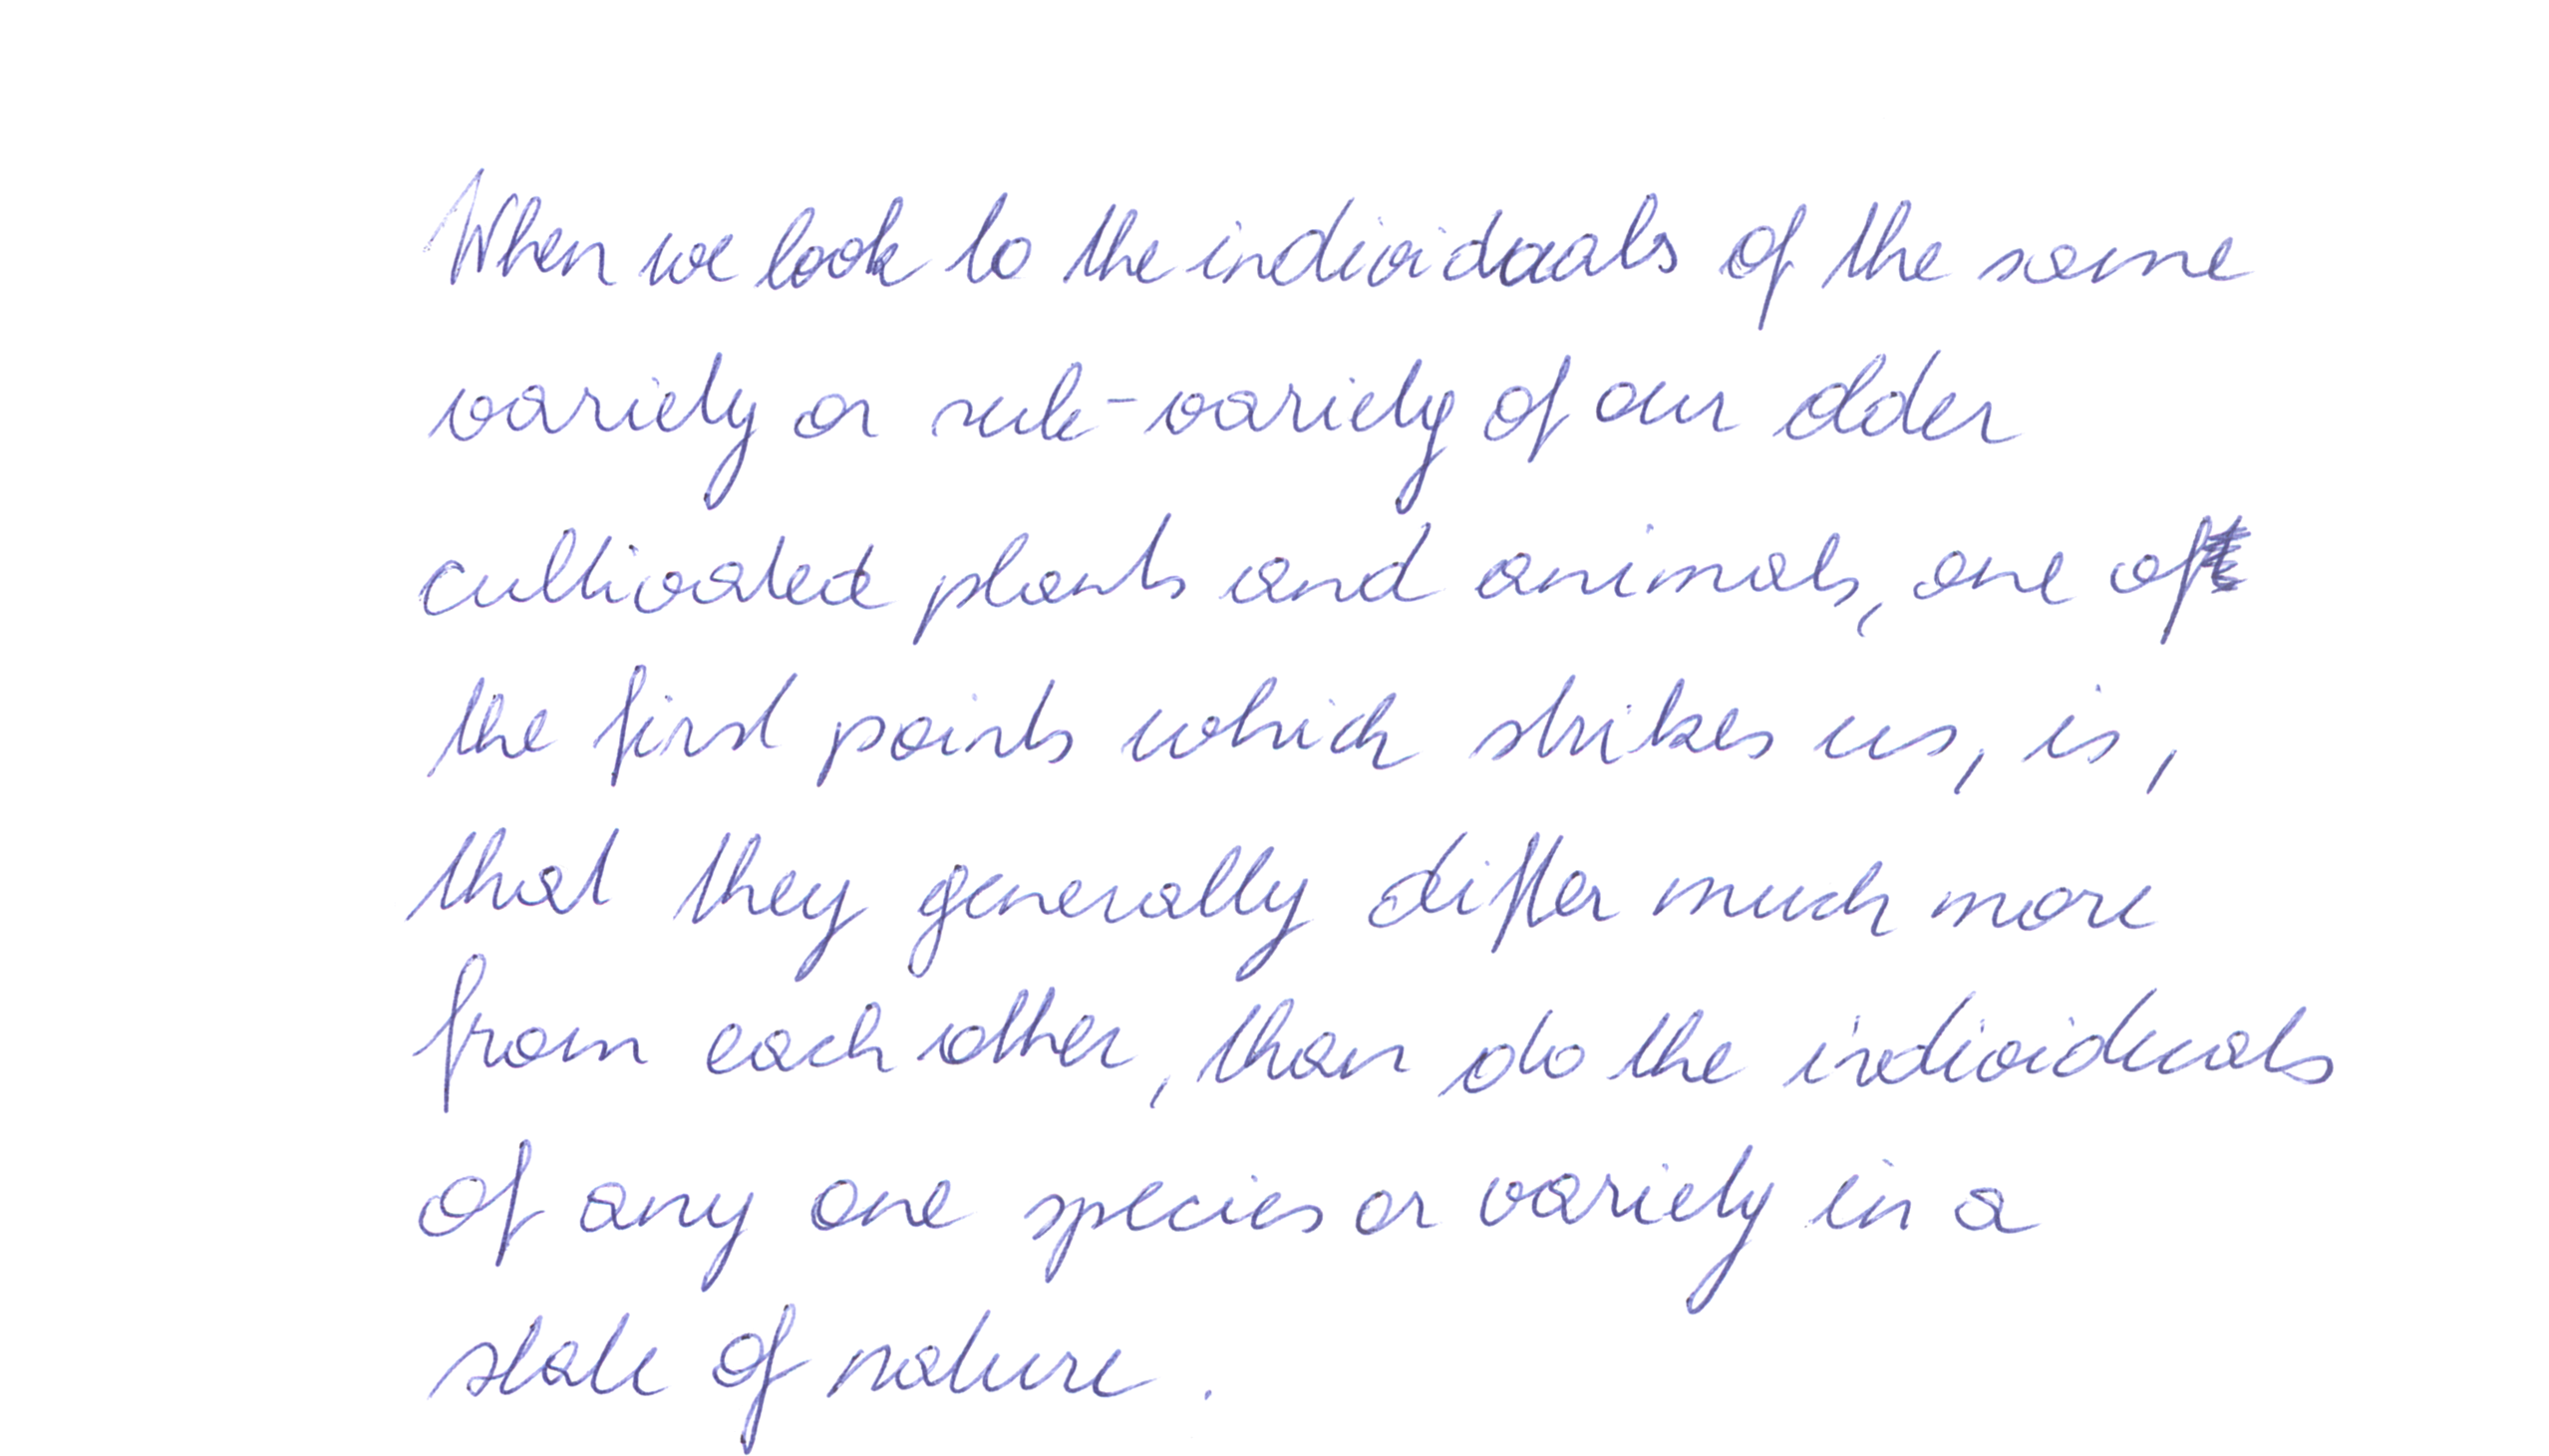 When we look to the individuals of the same
variety or sub-variety of our older
cultivated plants and animals, one of
the first points which strikes us, is,
that they generally differ much more
from each other, than do the individuals
of any one species or variety in a
state of nature.